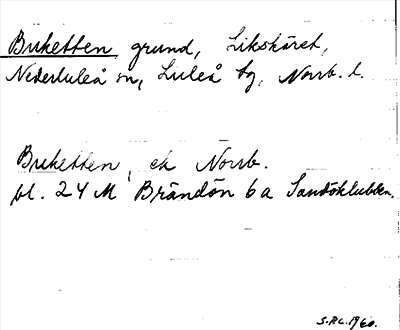 Buketten, grund, Likskäret,
Nederluleå sn, Luleå tg, Norrb. l.
Buketten, ek Norrb.
bl. 24 M Brändön 6 a Sandöklubben.
1960.